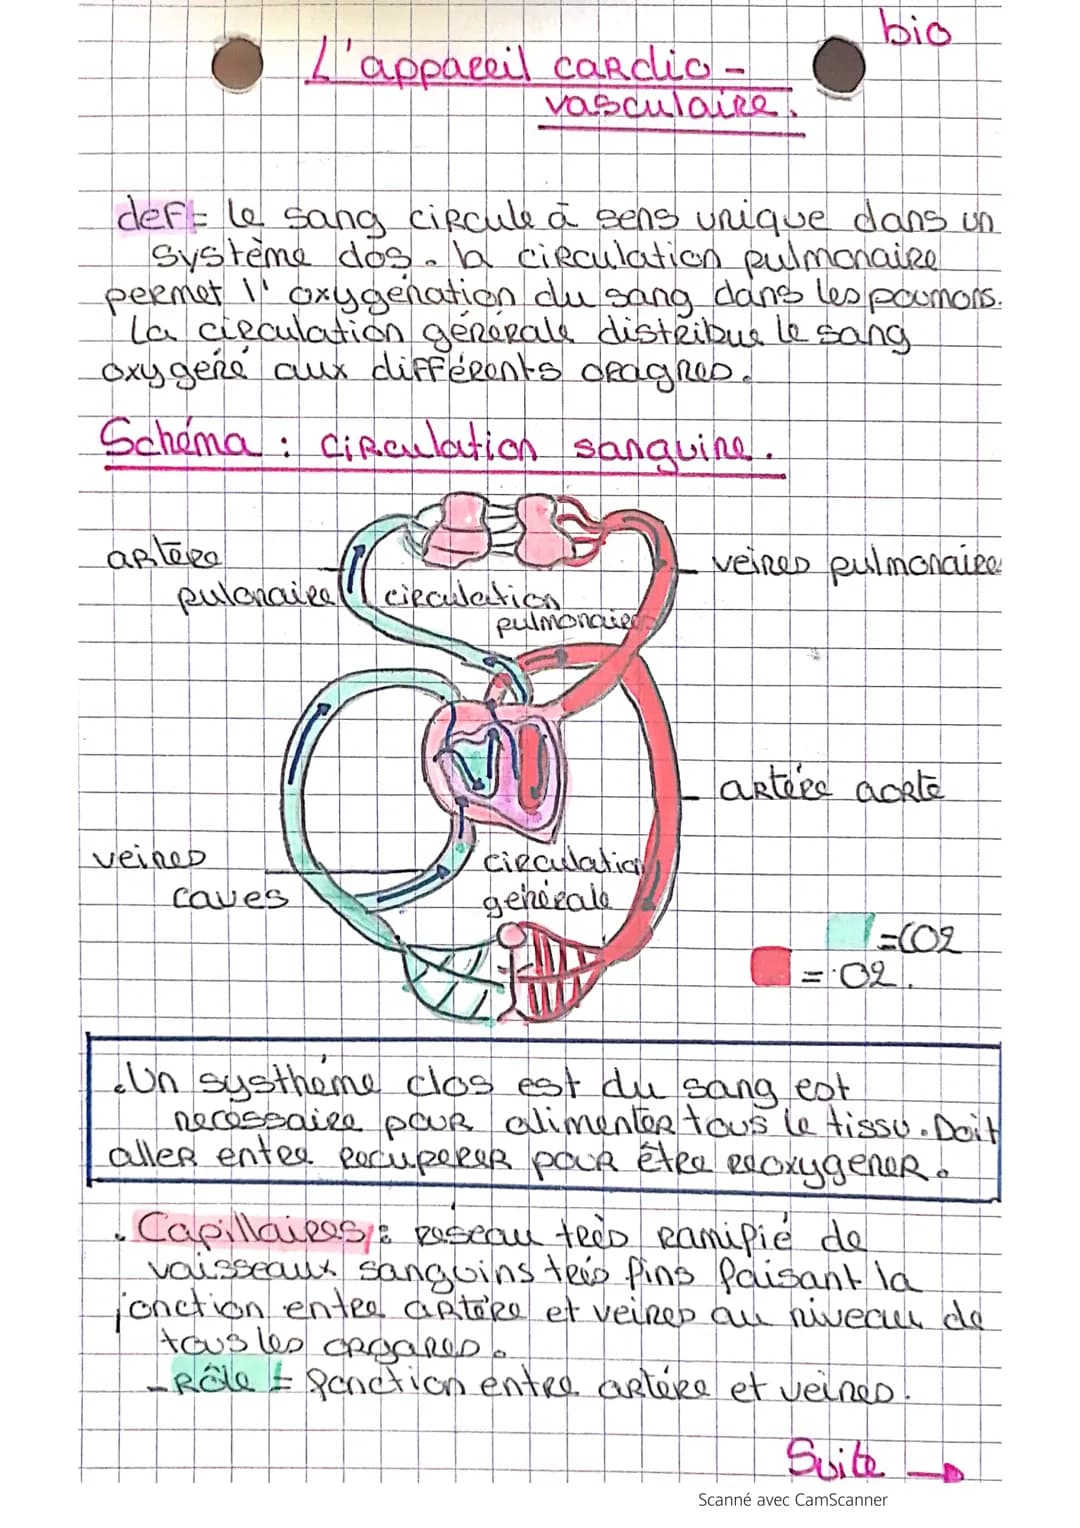 bio
L'appareil cardio-
vasculaire.
def= le sang circule à sens unique dans un
système clos. la circulation pulmonaire
permet l'oxygénation du sang dans les poumons.
La circulation générale distribue le sang
oxygéné aux différents oragnes.
Schéma : circulation sanguine.
artère
pulonaire
circulation
pulmonaire
veines pulmonaire
artère aorte
veines
caves
circulation
générale
=CO2
= O2.
.Un systhéme clos est du sang est
necessaire pour alimenter tous le tissu. Doit
aller entre recuperer pour être reoxygener.
. Capillaires : reseau très ramifié de
vaisseaux sanguins très fins faisant la
jonction entre artère et veines au niveau de
tous les organes.
- Rôle = fonction entre artère et veines.
Suite →
Scanné avec CamScanner